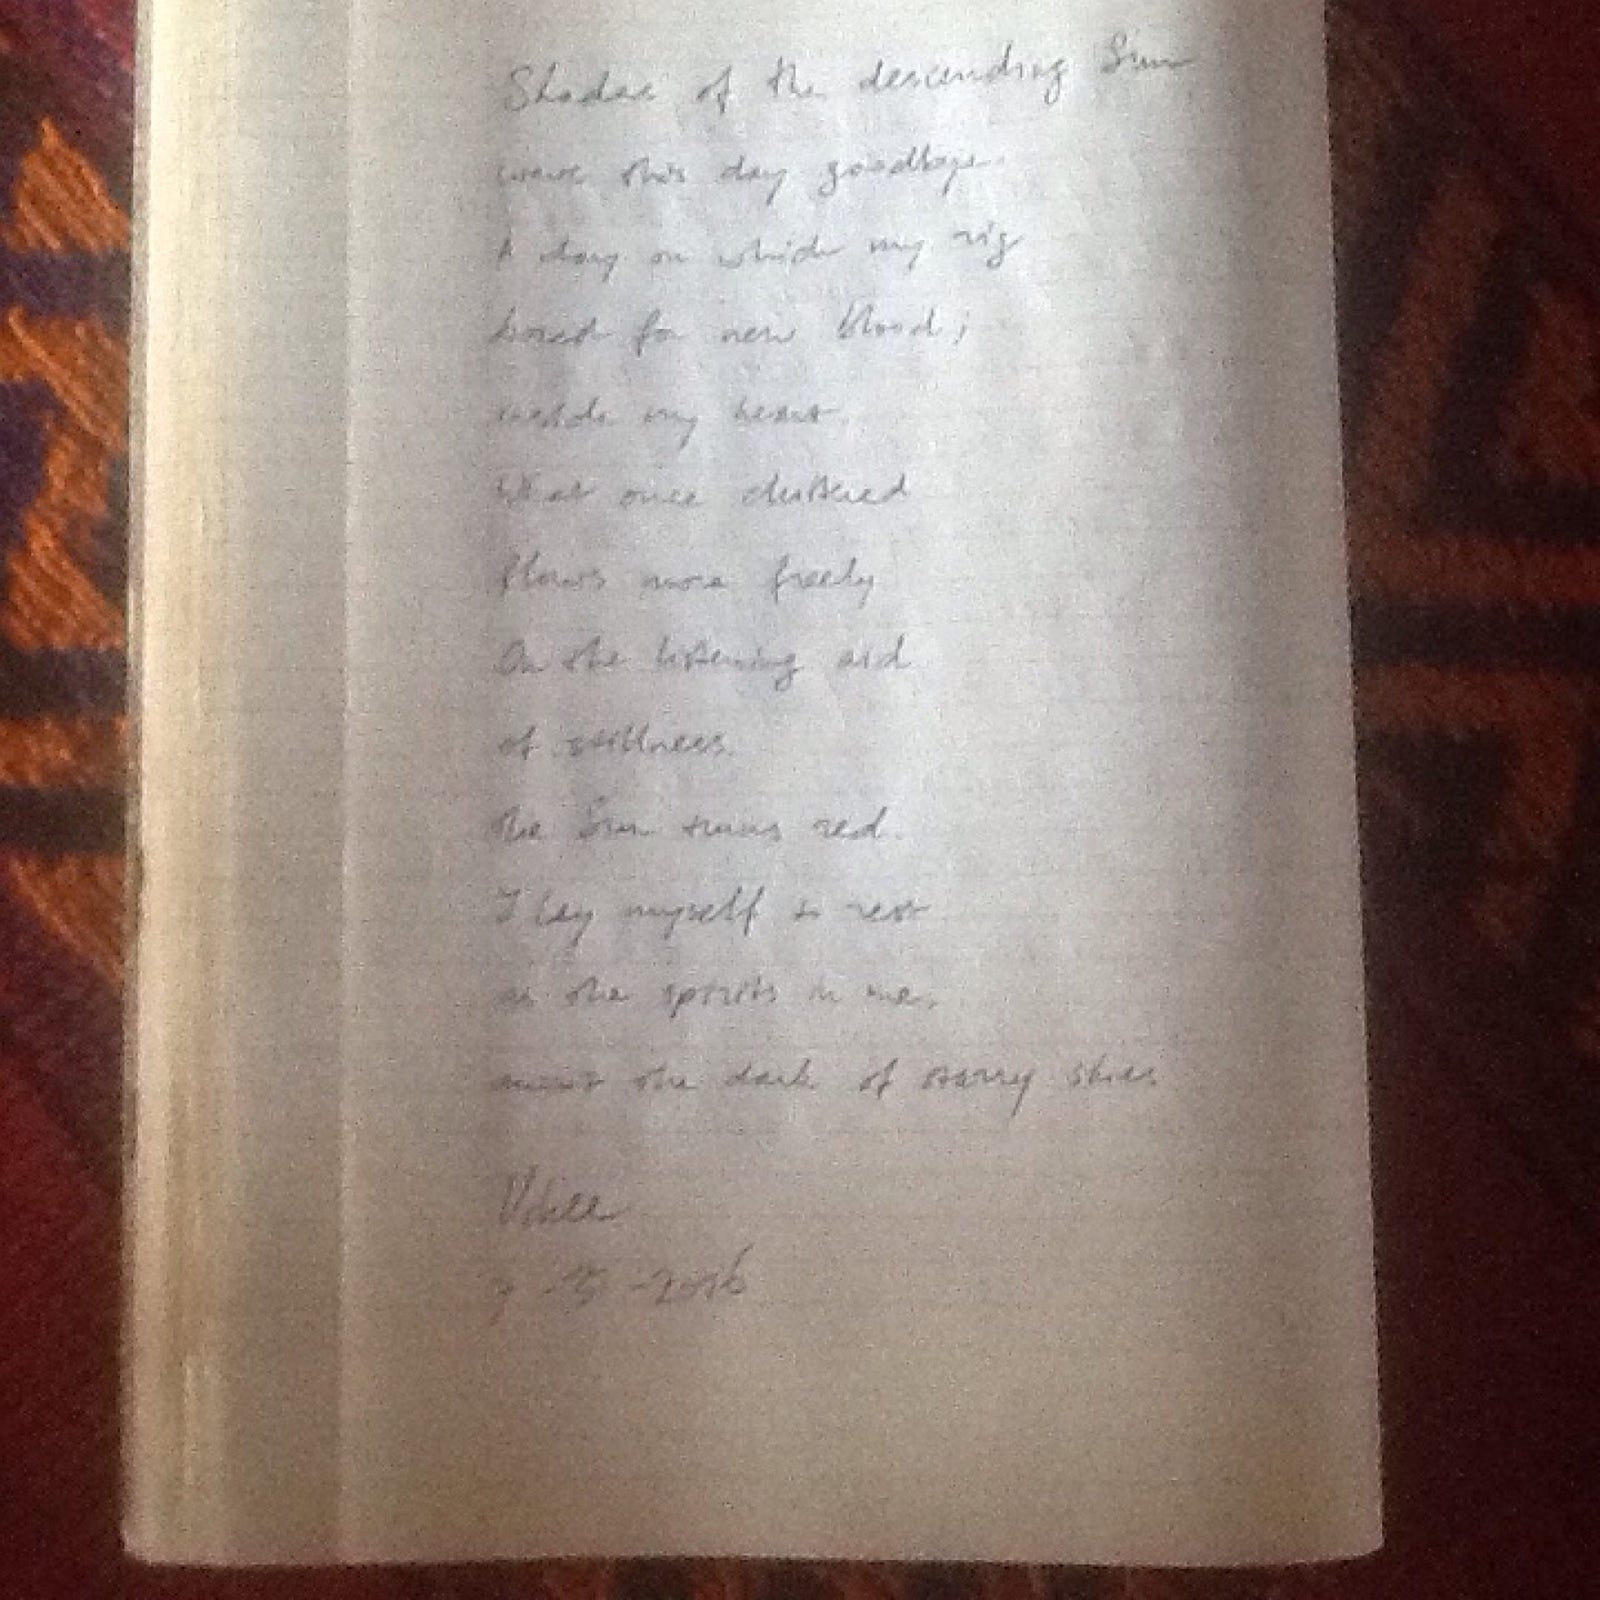 Shades of the descending Sun
wave this day goodbye.
A day on which my rig
bored for new blood;
inside my heart.
What once clustered
flows more freely
On the listening aid
of stillness.
the Sun turns red.
I lay myself to rest
as the spirits in me,
meet the dark of starry skies
2016